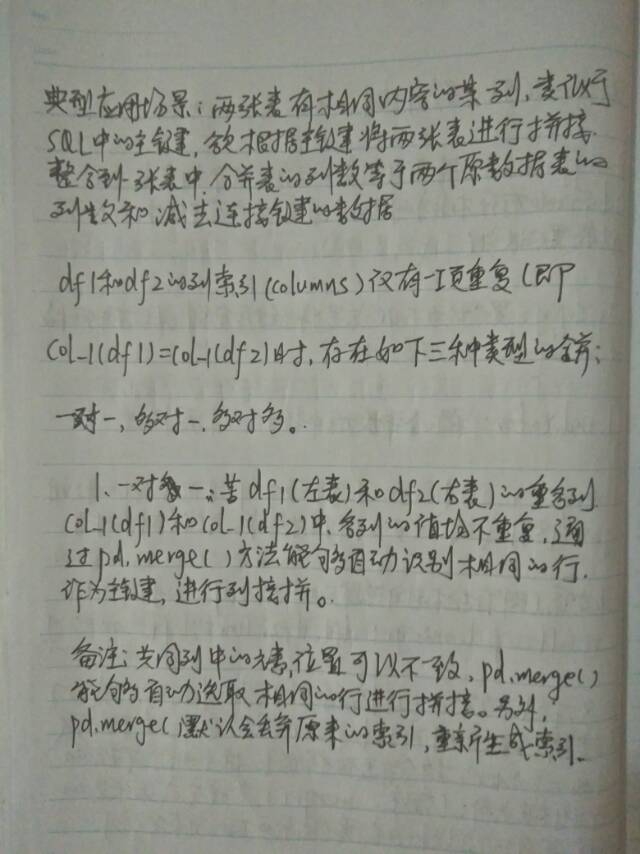 典型应用场景：两张表有相同内容的某一列，类似于
SQL中的主键，欲根据主键将两张表进行拼接
整合到一张表中，合并表的列数等于两个原数据表的
列数和减去连接键的数据
df1和df2的列索引(columns)仅有一项重复(即
col_1(df1)=col_1(df2)时，存在如下三种类型的合并：
一对一，多对一，多对多。
1、一对一：若df1(左表)和df2(右表)的重名列
col_1(df1)和col_1(df2)中，各列的值均不重复，通
过pd.merge()方法能够自动识别相同的行，
作为主键，进行列拼接。
备注：共同列中的元素，位置可以不一致，pd.merge()
能够自动选取相同的行进行拼接。另外，
pd.merge(默认会丢弃原来的索引，重新生成索引。